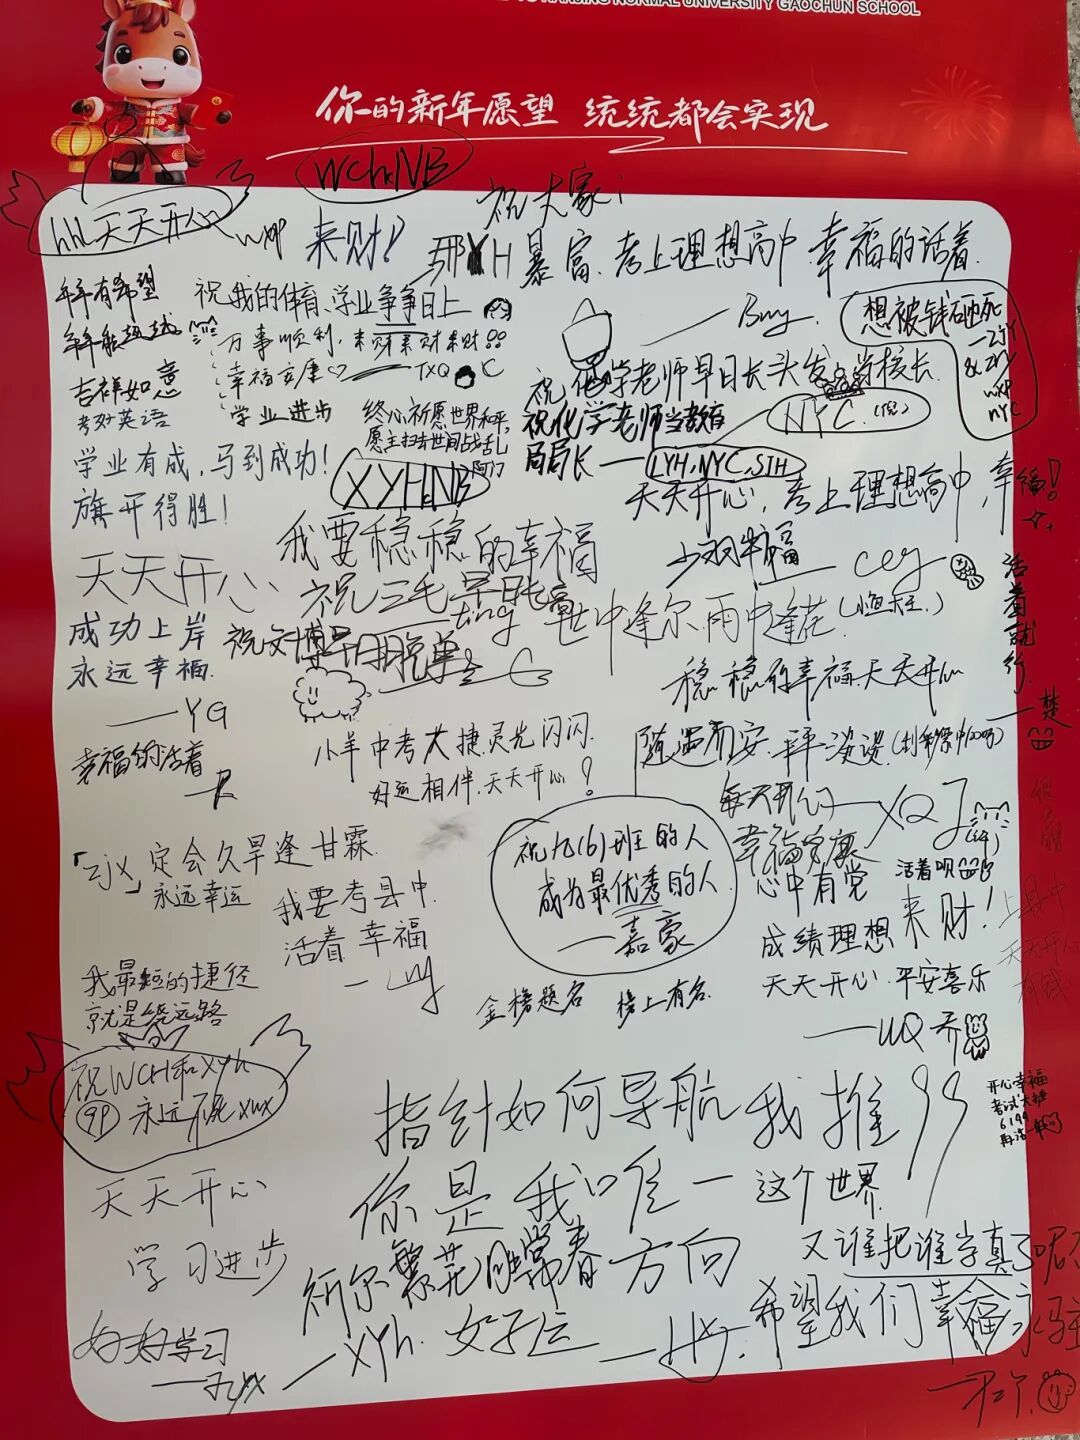 NANJING NORMAL UNIVERSITY GAOCHUN SCHOOL
你的新年愿望 统统都会实现
WCHNB
祝大家:
hhl天天开心
wxp
来财!
暴富.考上理想高中 幸福的活着.
年年有希望
年年能超越
吉祥如意
考好英语
祝我的体育、学业争争日上
万事顺利,来财来财来财!!
幸福安康♡ —TXQ C
学业进步
终心祈愿世界和平,
愿主扫去世间战乱
阿门
XYHNB
想被钱砸死
—ZJY
& ZRY
wxp
NYC
祝化学老师早日长头发 当校长.
祝化学老师当教育
局局长 — LYH,NYC,STH
NYC.(倪)
学业有成,马到成功!
旗开得胜!
天天开心,考上理想高中,幸福!
我要稳稳的幸福
天天开心
祝三毛早日长高
ting
祝文博早日脱单
成功上岸
永远幸福.
—YG
雨中逢花.
稳稳的幸福.天天开心
活着就行.
—楚
幸福的活着
—R
小羊中考大捷.灵光闪闪.
好运相伴.天天开心!
随遇而安.
每天开心
—XQJ
幸福安康
心中有党
成绩理想
天天开心.平安喜乐
活着呗
来财!
—UQ 乔
祝九(6)班的人
成为最优秀的人
—嘉豪
「zjx」定会久旱逢甘霖.
永远幸运
我要考县中.
活着 幸福
金榜题名 榜上有名.
上县中
天天开心
有钱
我最短的捷径
就是绕远路
祝WCH和XYh
99 永远不死xwx
天天开心
学习进步
好好学习
指针如何导航 我推99
你是我唯一
方向
祈尔繁花胜常春
—XYh. 女子运
这个世界.
又谁把谁当真了呢
希望我们幸福永驻
开心幸福
考试大捷
6199
再活一年